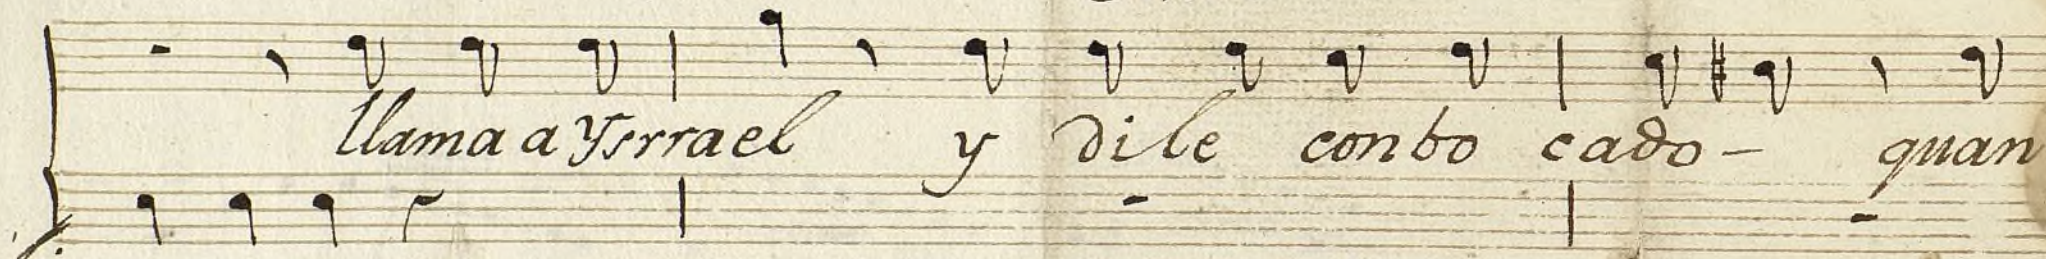 llama a Ysrrael y dile conbo cado - quan